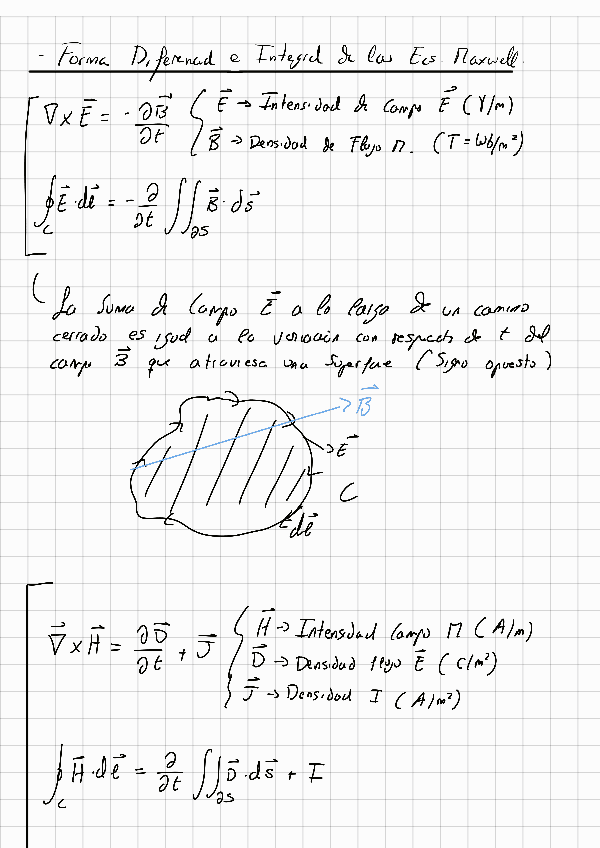 - Forma Diferencial e Integral de las Ecs. Maxwell.
∇ x E⃗ = - ∂B⃗/∂t { E⃗ → Intensidad de Campo E⃗ (V/m)
B⃗ → Densidad de Flujo M. (T = Wb/m²)
∮_C E⃗ · dl⃗ = - ∂/∂t ∬_∂S B⃗ · ds⃗
La suma de Campo E⃗ a lo largo de un camino
cerrado es igual a la variación con respecto de t del
campo B⃗ que atraviesa una superficie (Signo opuesto)
B⃗
E⃗
C
dl⃗
∇⃗ x H⃗ = ∂D⃗/∂t + J⃗ { H⃗ → Intensidad Campo M (A/m)
D⃗ → Densidad flujo E⃗ (C/m²)
J⃗ → Densidad I (A/m²)
∮_C H⃗ · dl⃗ = ∂/∂t ∬_∂S D⃗ · ds⃗ + I